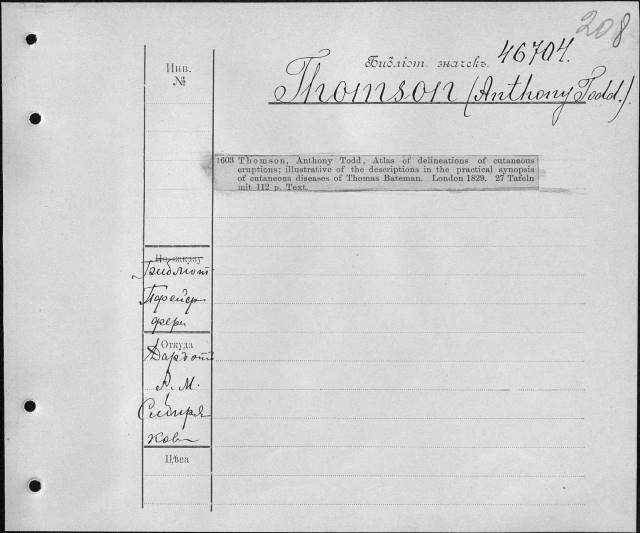 208
Библіот. значекъ. 46704.
Thomson (Anthony Todd.)
Инв.
№
1603 Thomson, Anthony Todd, Atlas of delineations of cutaneous
eruptions; illustrative of the descriptions in the practical synopsis
of cutaneous diseases of Thomas Bateman. London 1829. 27 Tafeln
mit 112 p. Text.
По заказу
Библіот
Откуда
А. М.
Сибиря
кова
Цѣна